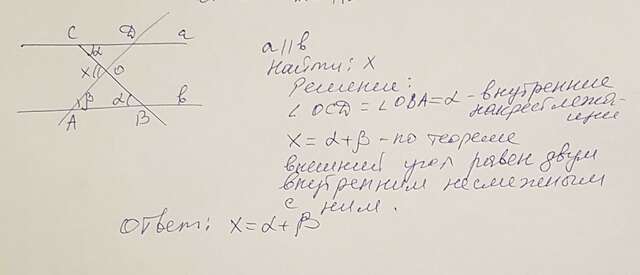 C D a
α
x O
β α b
A B
a∥b
Найти: x
Решение:
∠OCD = ∠OBA = α - внутренние
накрест лежа-
щие
x = α+β - по теореме
внешний угол равен двум
внутренним несмежным
с ним.
Ответ: x = α+β